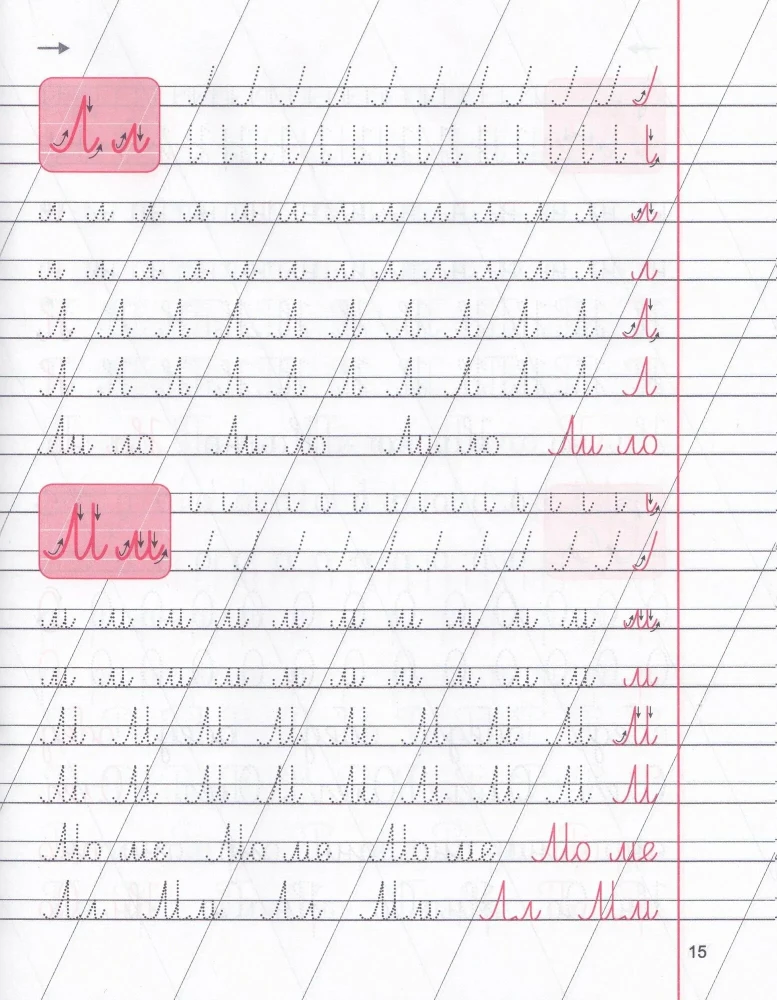 Л л
л л л л л л л л л л л л л
л л л л л л л л л л л л л
Л Л Л Л Л Л Л Л Л Л Л
Л Л Л Л Л Л Л Л Л Л Л
Ли ло Ли ло Ли ло Ли ло
М м
м м м м м м м м м м м
м м м м м м м м м м м
М М М М М М М М М
М М М М М М М М М
Мо ме Мо ме Мо ме Мо ме
Лл Мм Лл Мм Лл Мм
15